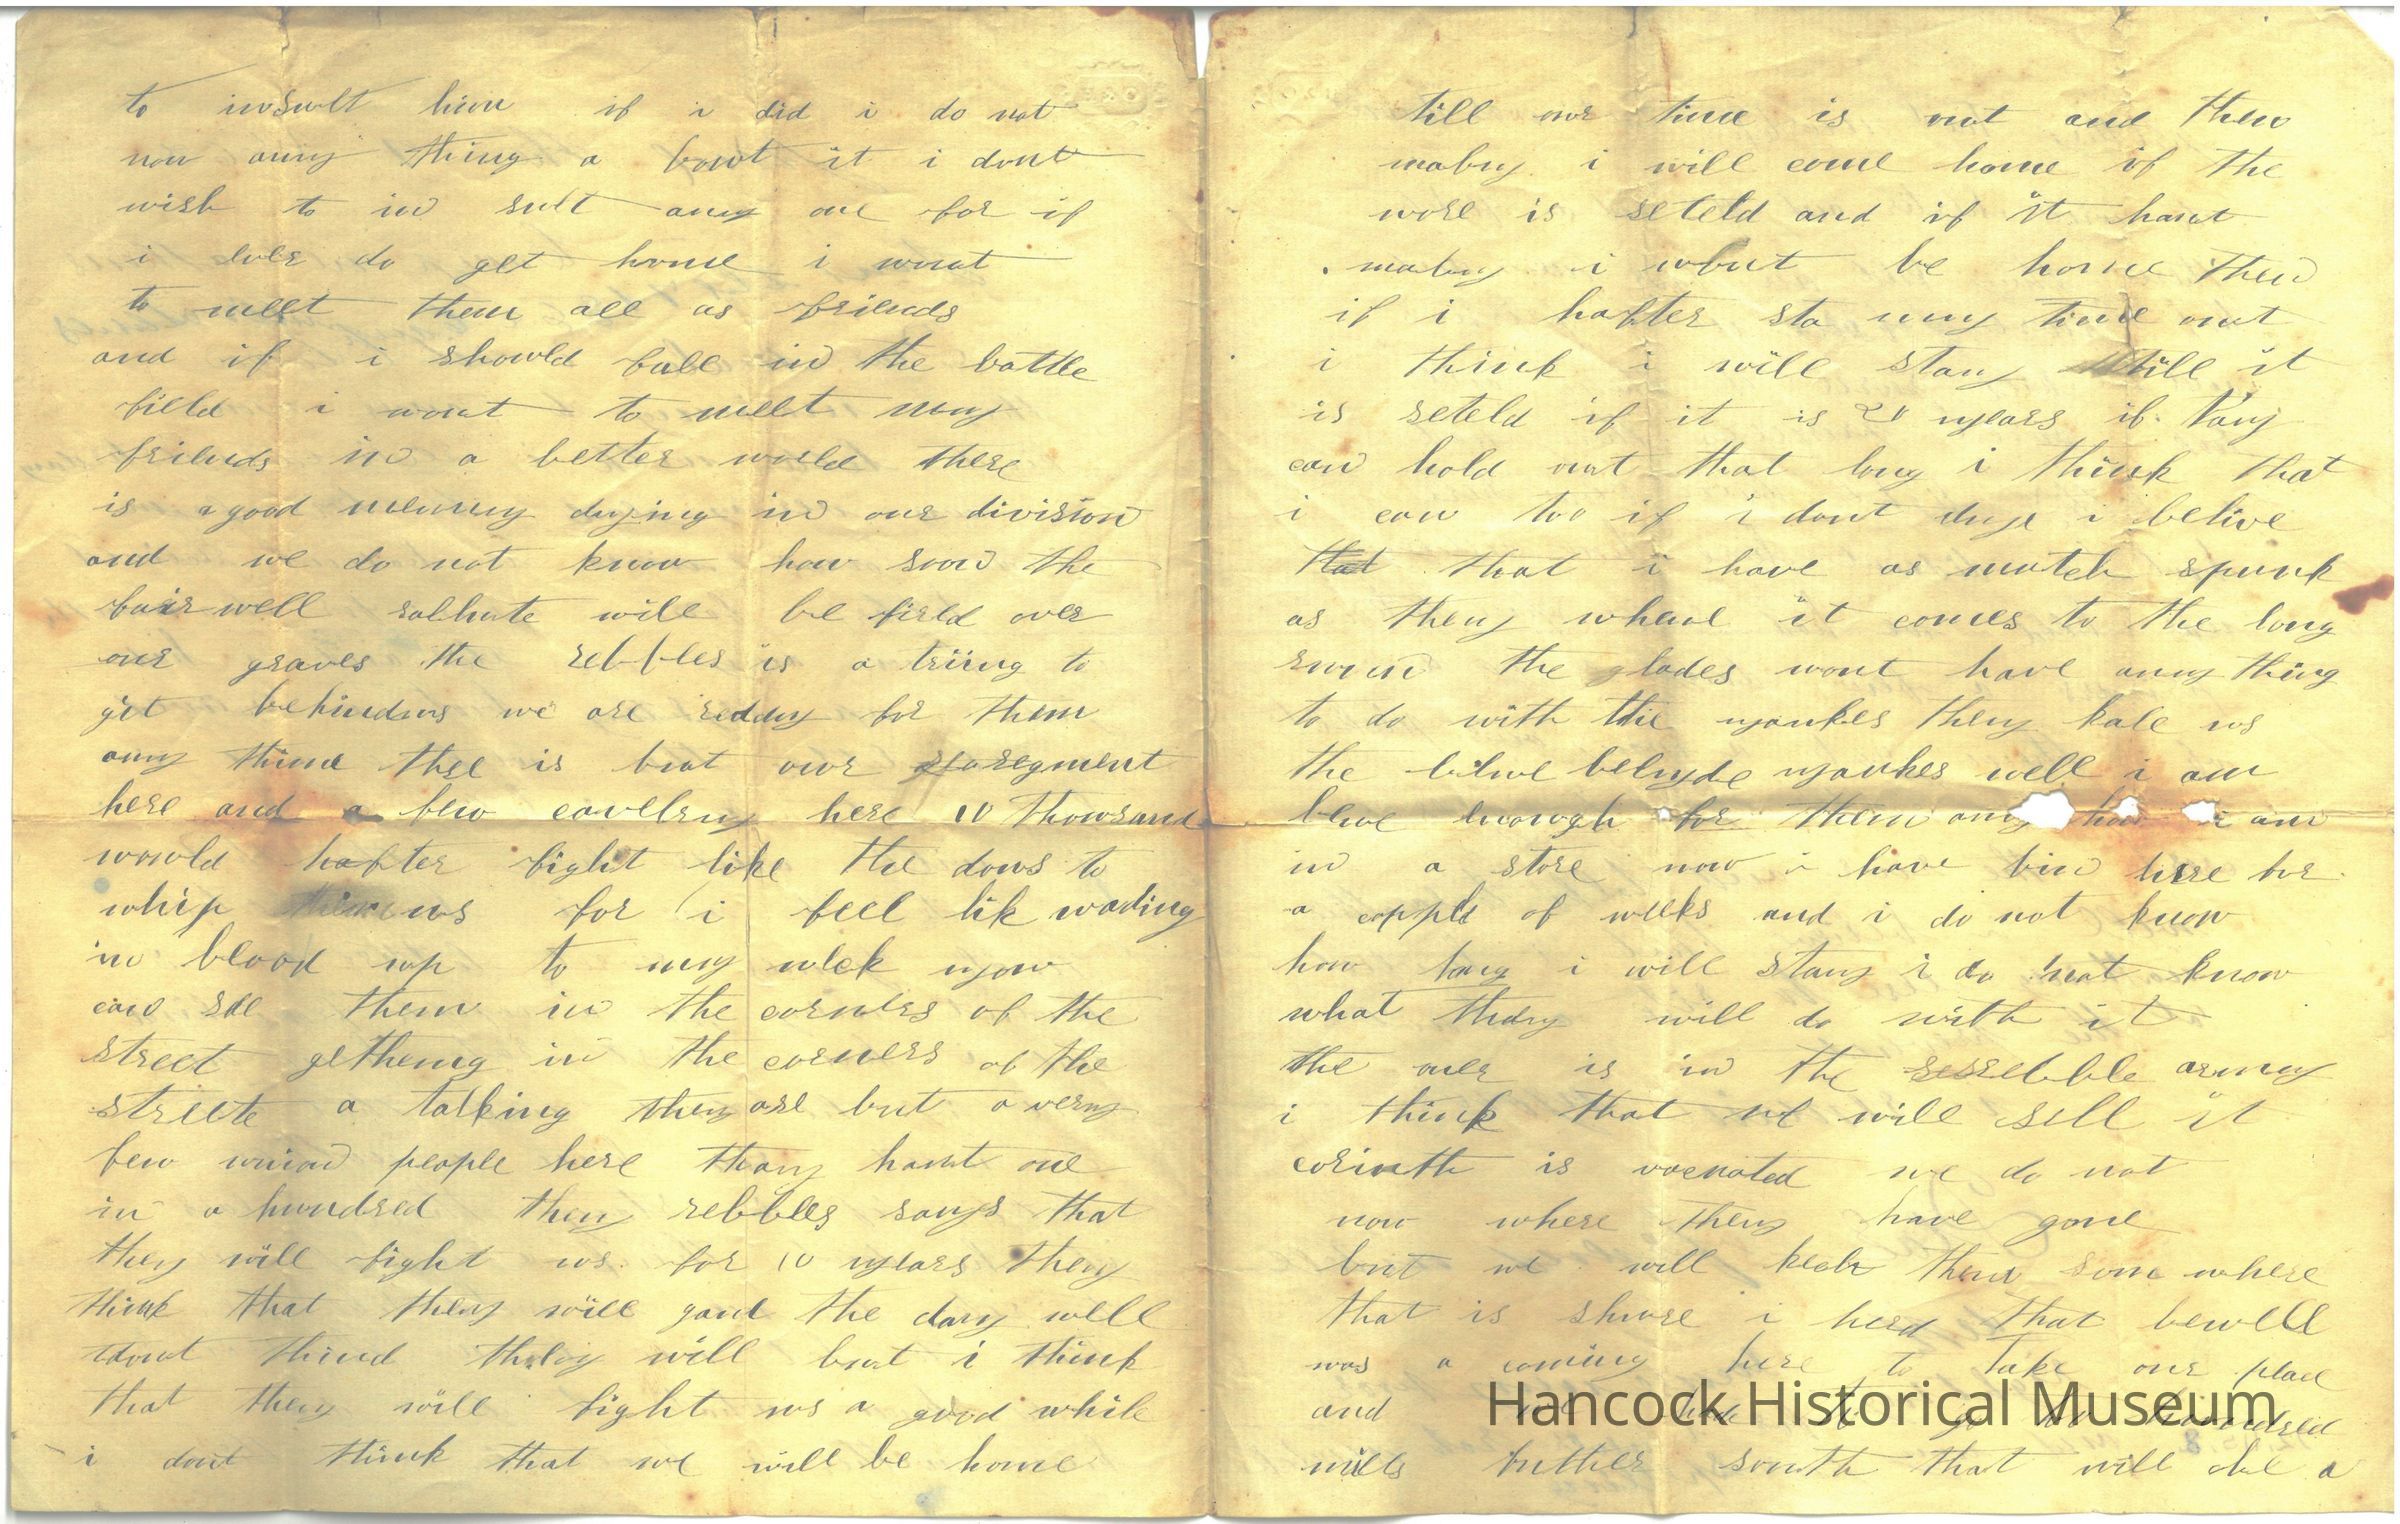 to insult him if i did i do not
now anny thing a bowt it i dont
wish to in sult anny one for if
i ever do get home i want
to meet them all as friends
and if i showld fall in the battle
field i want to meet my
friends in a better world there
is a good menny dying in our division
and we do not know how soon the
fairwell sallute will be fired over
our graves the rebbles is a triing to
git behindus we are reddy for them
anny thime thre is but our regment
here and a few cavelry here 10 thowsand
wowld hafter fight like the dows to
whip us for i feel lik wading
in blood up to my neck you
can see them in the corners of the
street gethering in the corners of the
streete a talking they are but a very
few union people here thay hant one
in a hundred they rebbles says that
they will fight us for 10 years they
think that they will gane the day well
i dont think they will but i think
that they will fight us a good while
i dont think that we will be home
till our time is out and then
maby i will come home if the
wore is seteld and if it hant
maby i wount be home then
if i hafter sta my time out
i think i will stay till it
is seteld if it is 20 years if thay
can hold out that long i think that
i can too if i dont dye i belive
that that i have as mutch spunk
as they whene it comes to the long
run the blades wont have anny thing
to do with the yankes they kale us
the blue belyde yankes well i am
blue enough for them any how i am
in a store now i have bin here for
a copple of weeks and i do not know
how long i will stay i do not know
what they will do with it
the oner is in the rebble army
i think that we will sell it
corinth is vacnated we do not
now where they have gone
but we will kech them some where
that is shure i herd that bewell
was a coming here to take our place
and hundred
miles futher south that will be a
Hancock Historical Museum